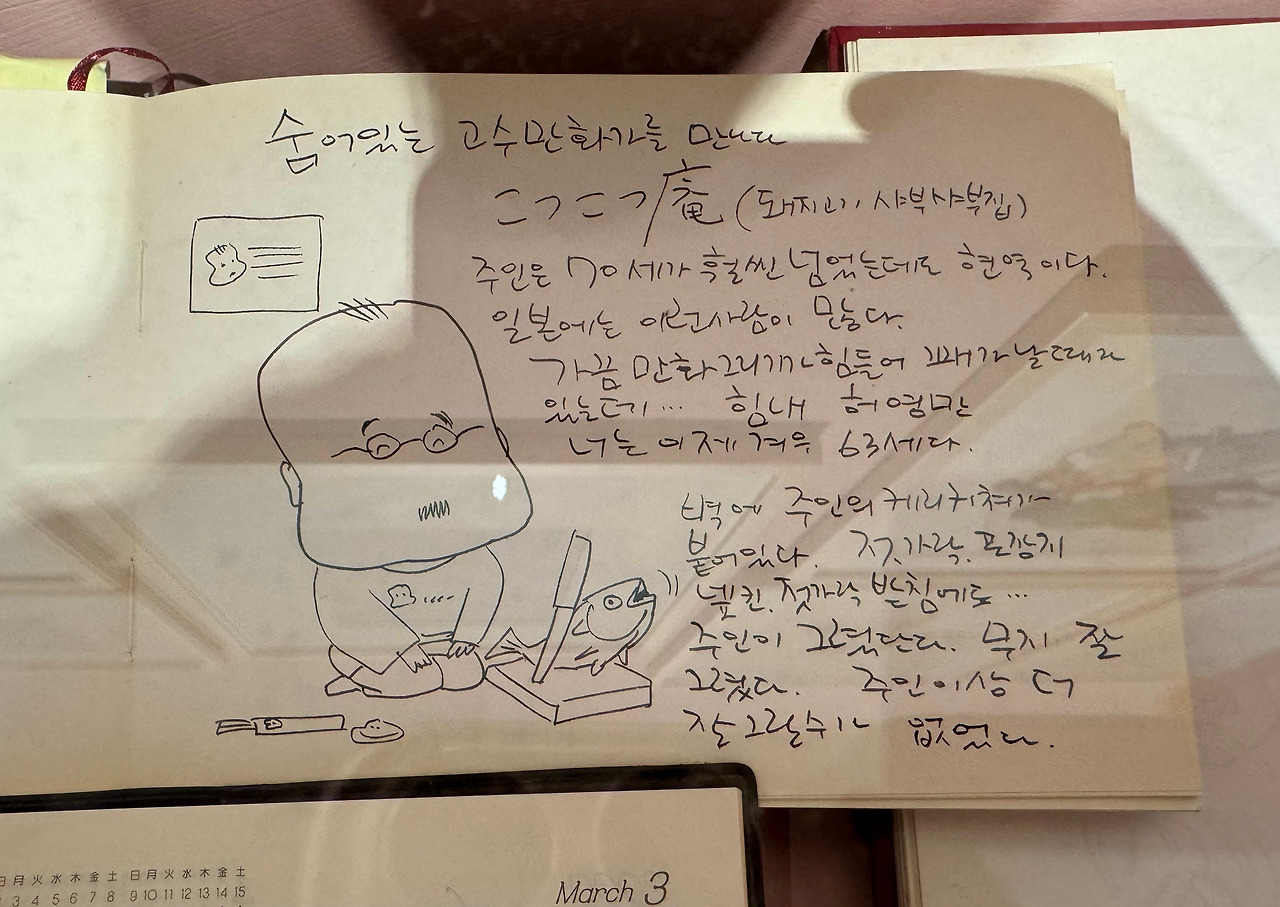 숨어있는 고수만화가를 만나다
こつこつ庵 (돼지고기 샤부샤부집)
주인은 70세가 훨씬 넘었는데도 현역이다.
일본에는 이런사람이 많다.
가끔 만화그리기가 힘들어 꾀가 날때가
있는데... 힘내 허영만
너는 이제 겨우 63세다.
벽에 주인의 케리커쳐가
붙어있다. 젓가락, 포장지
넵킨, 젓가락 받침에도...
주인이 그렸단다. 무지 잘
그렸다. 주인이상 더
잘 그릴수가 없었다.
日 月 火 水 木 金 土 日 月 火 水 木 金 土
3 4 5 6 7 8 9 10 11 12 13 14 15
March 3